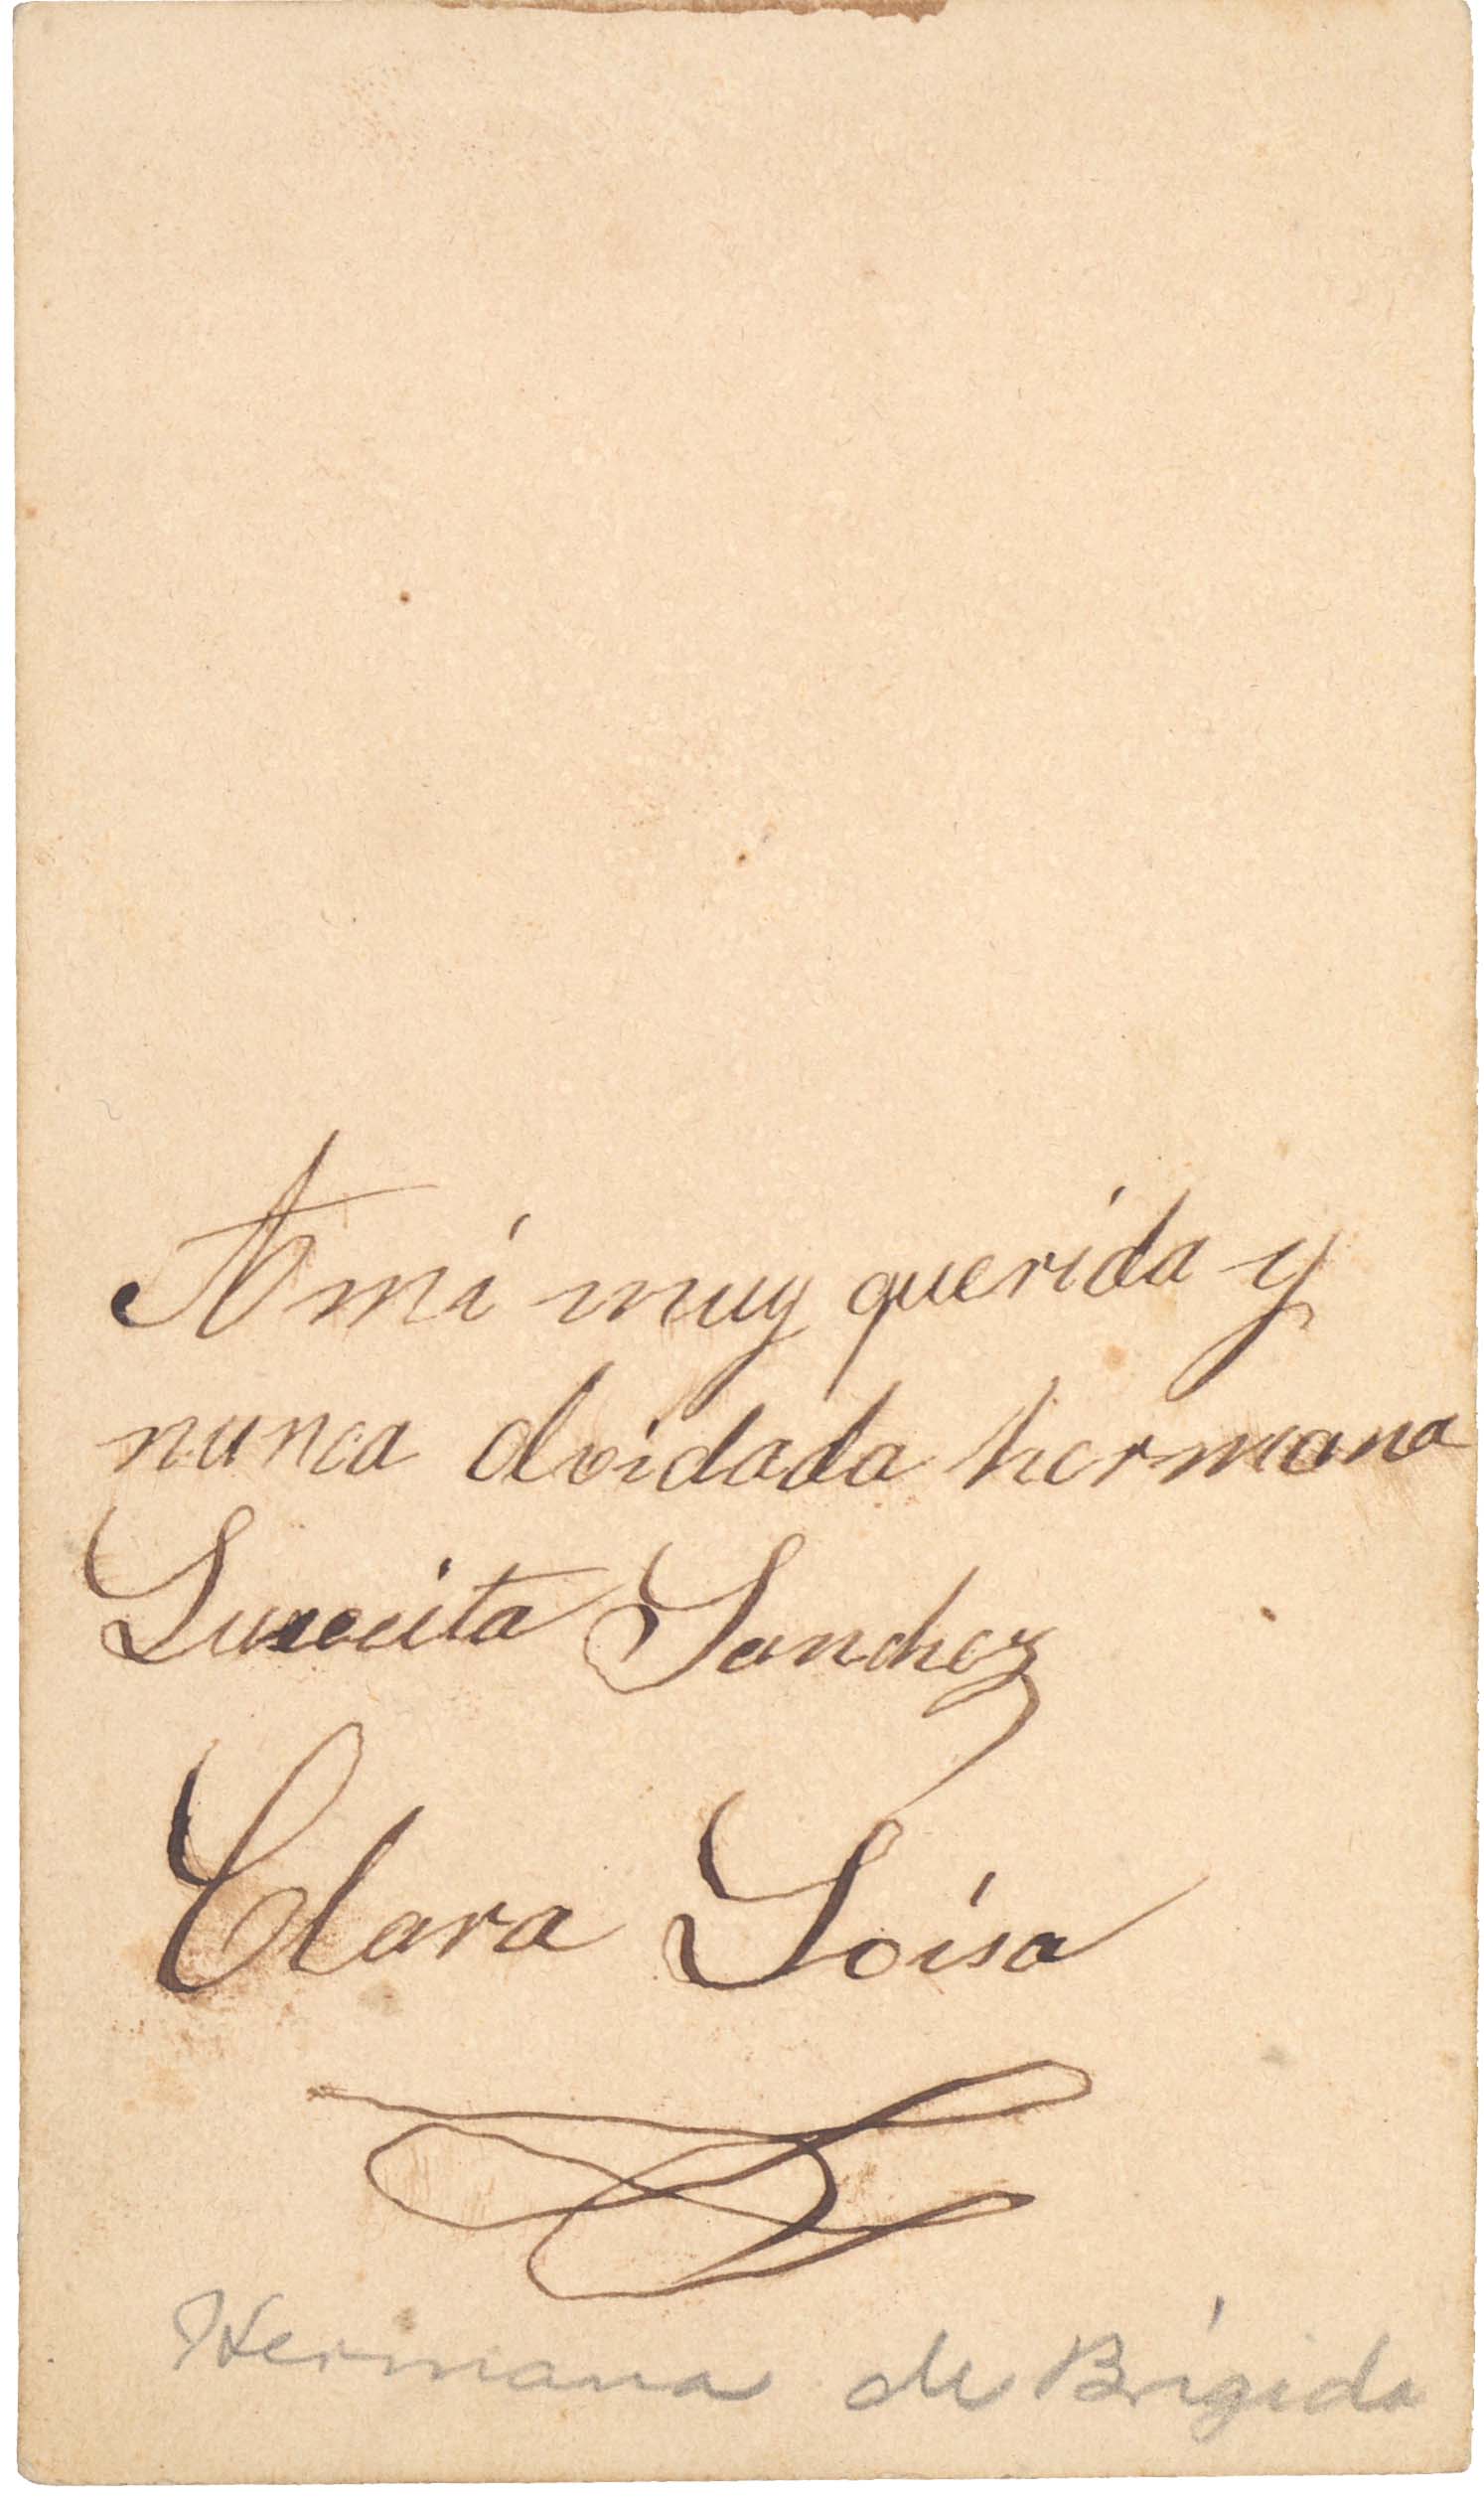 A mi muy querida y
nunca olvidada hermana
Sanchez
Clara Loisa
Hermana de Brígida